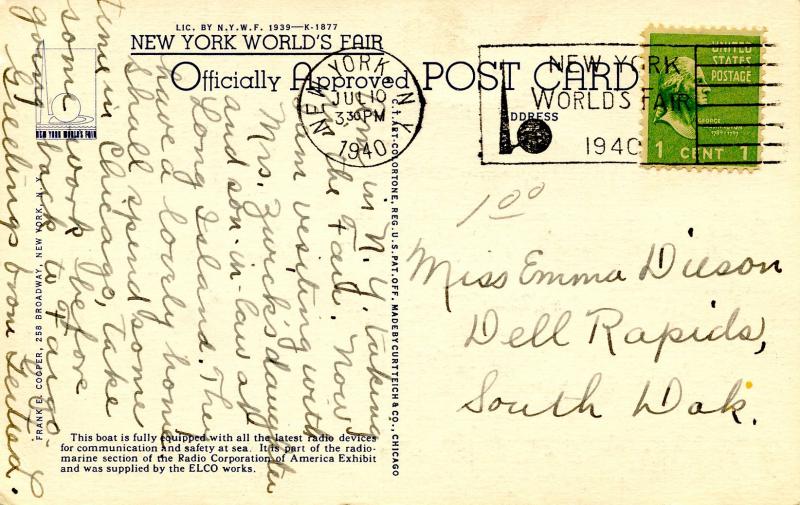 LIC. BY N.Y.W.F. 1939—K-1877
NEW YORK WORLD'S FAIR
Officially Approved POST CARD
ADDRESS
NEW YORK WORLD'S FAIR
NEW YORK N.Y.
JUL 10
3:30 PM
1940
NEW YORK
WORLDS FAIR
1940
UNITED
STATES
POSTAGE
GEORGE
WASHINGTON
1789-1797
1 CENT 1
in N.Y. taking
in the Fair. Now
am visiting with
Mrs. Zurick's daughter
and son-in-law at
Long Island. They
have a lovely home
Shall spend some
time in Chicago, take
some work before
going back to Fargo.
Greetings from
1 00
Miss Emma
Dell Rapids,
South Dak.
FRANK E. COOPER, 258 BROADWAY, NEW YORK, N.Y.
C.T. ART-COLORTONE, REG. U.S. PAT. OFF. MADE BY CURT TEICH & CO., CHICAGO
This boat is fully equipped with all the latest radio devices
for communication and safety at sea. It is part of the radio-
marine section of the Radio Corporation of America Exhibit
and was supplied by the ELCO works.